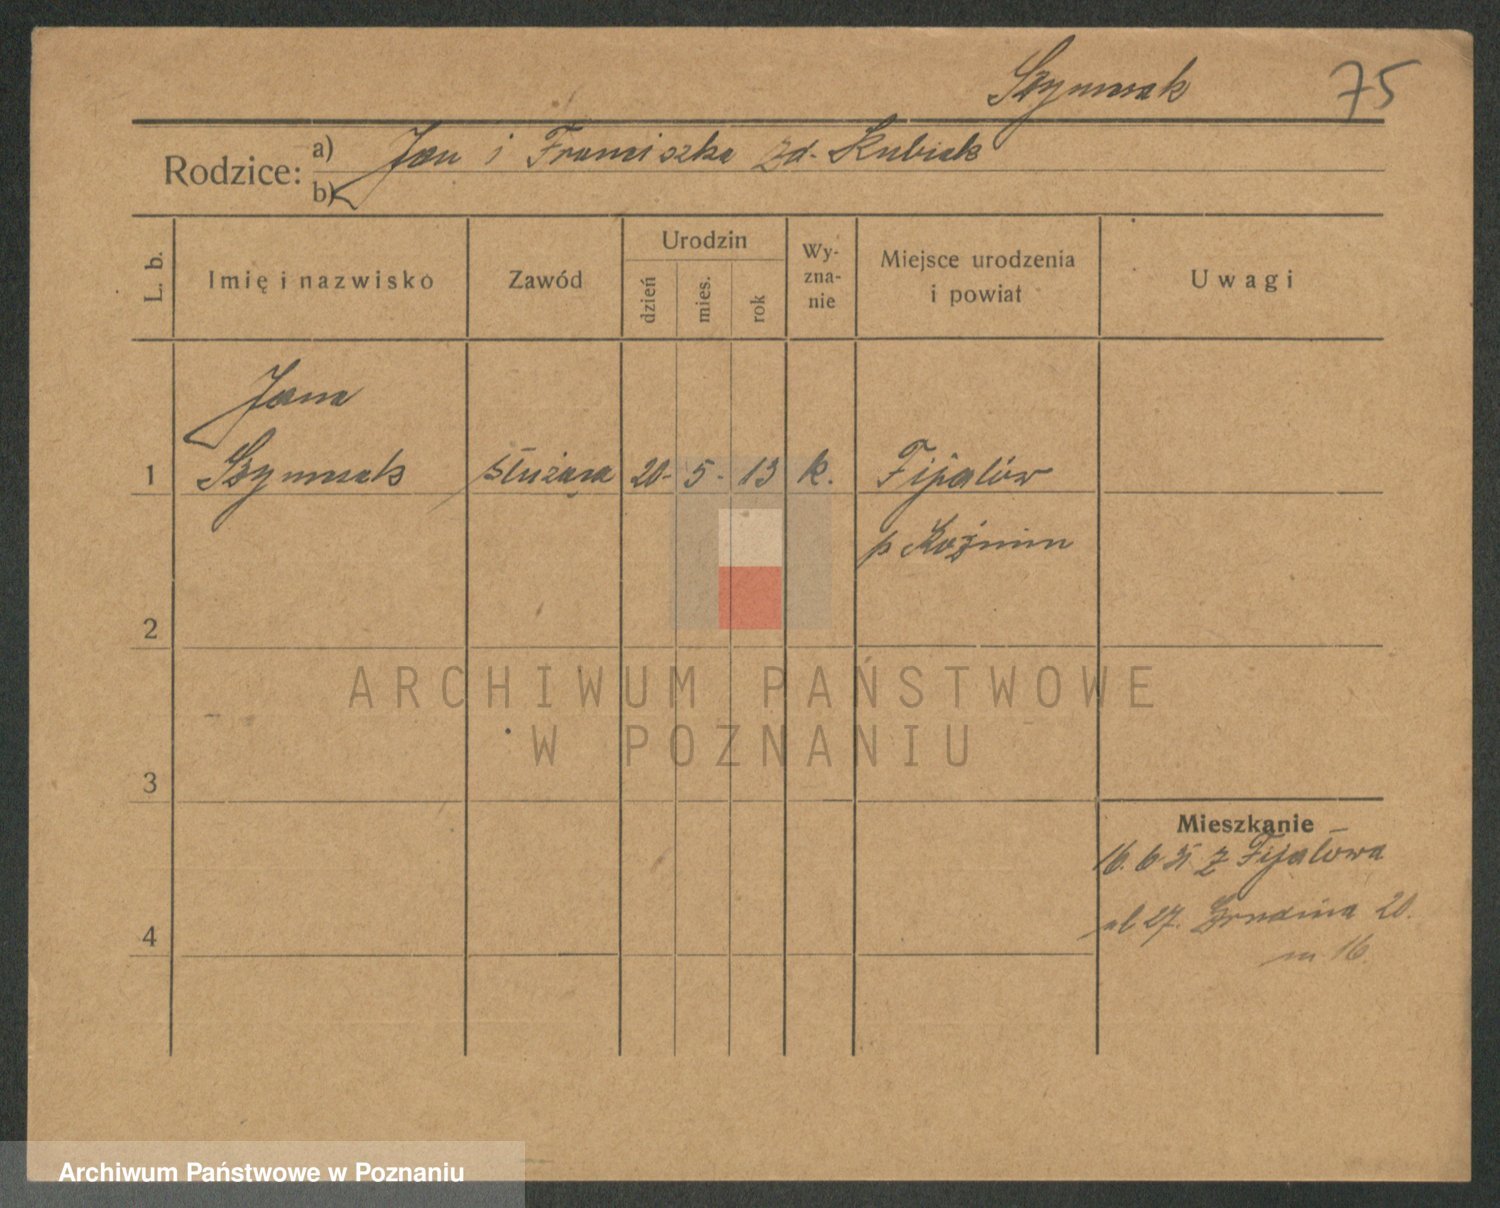 Szymczak 75
Rodzice: a) Jan i Franciszka zd. Kubiak
b)
L. b.
Imię i nazwisko
Zawód
Urodzin
dzień
mies.
rok
Wy-
zna-
nie
Miejsce urodzenia
i powiat
Uwagi
Jana
1 Szymczak służąca 20. 5. 13 k. Fijałów
p Koźmin
2
ARCHIWUM PAŃSTWOWE
W POZNANIU
3
Mieszkanie
16. 6 31 z Fijałowa
27. Grudnia 20.
4
m 16.
Archiwum Państwowe w Poznaniu